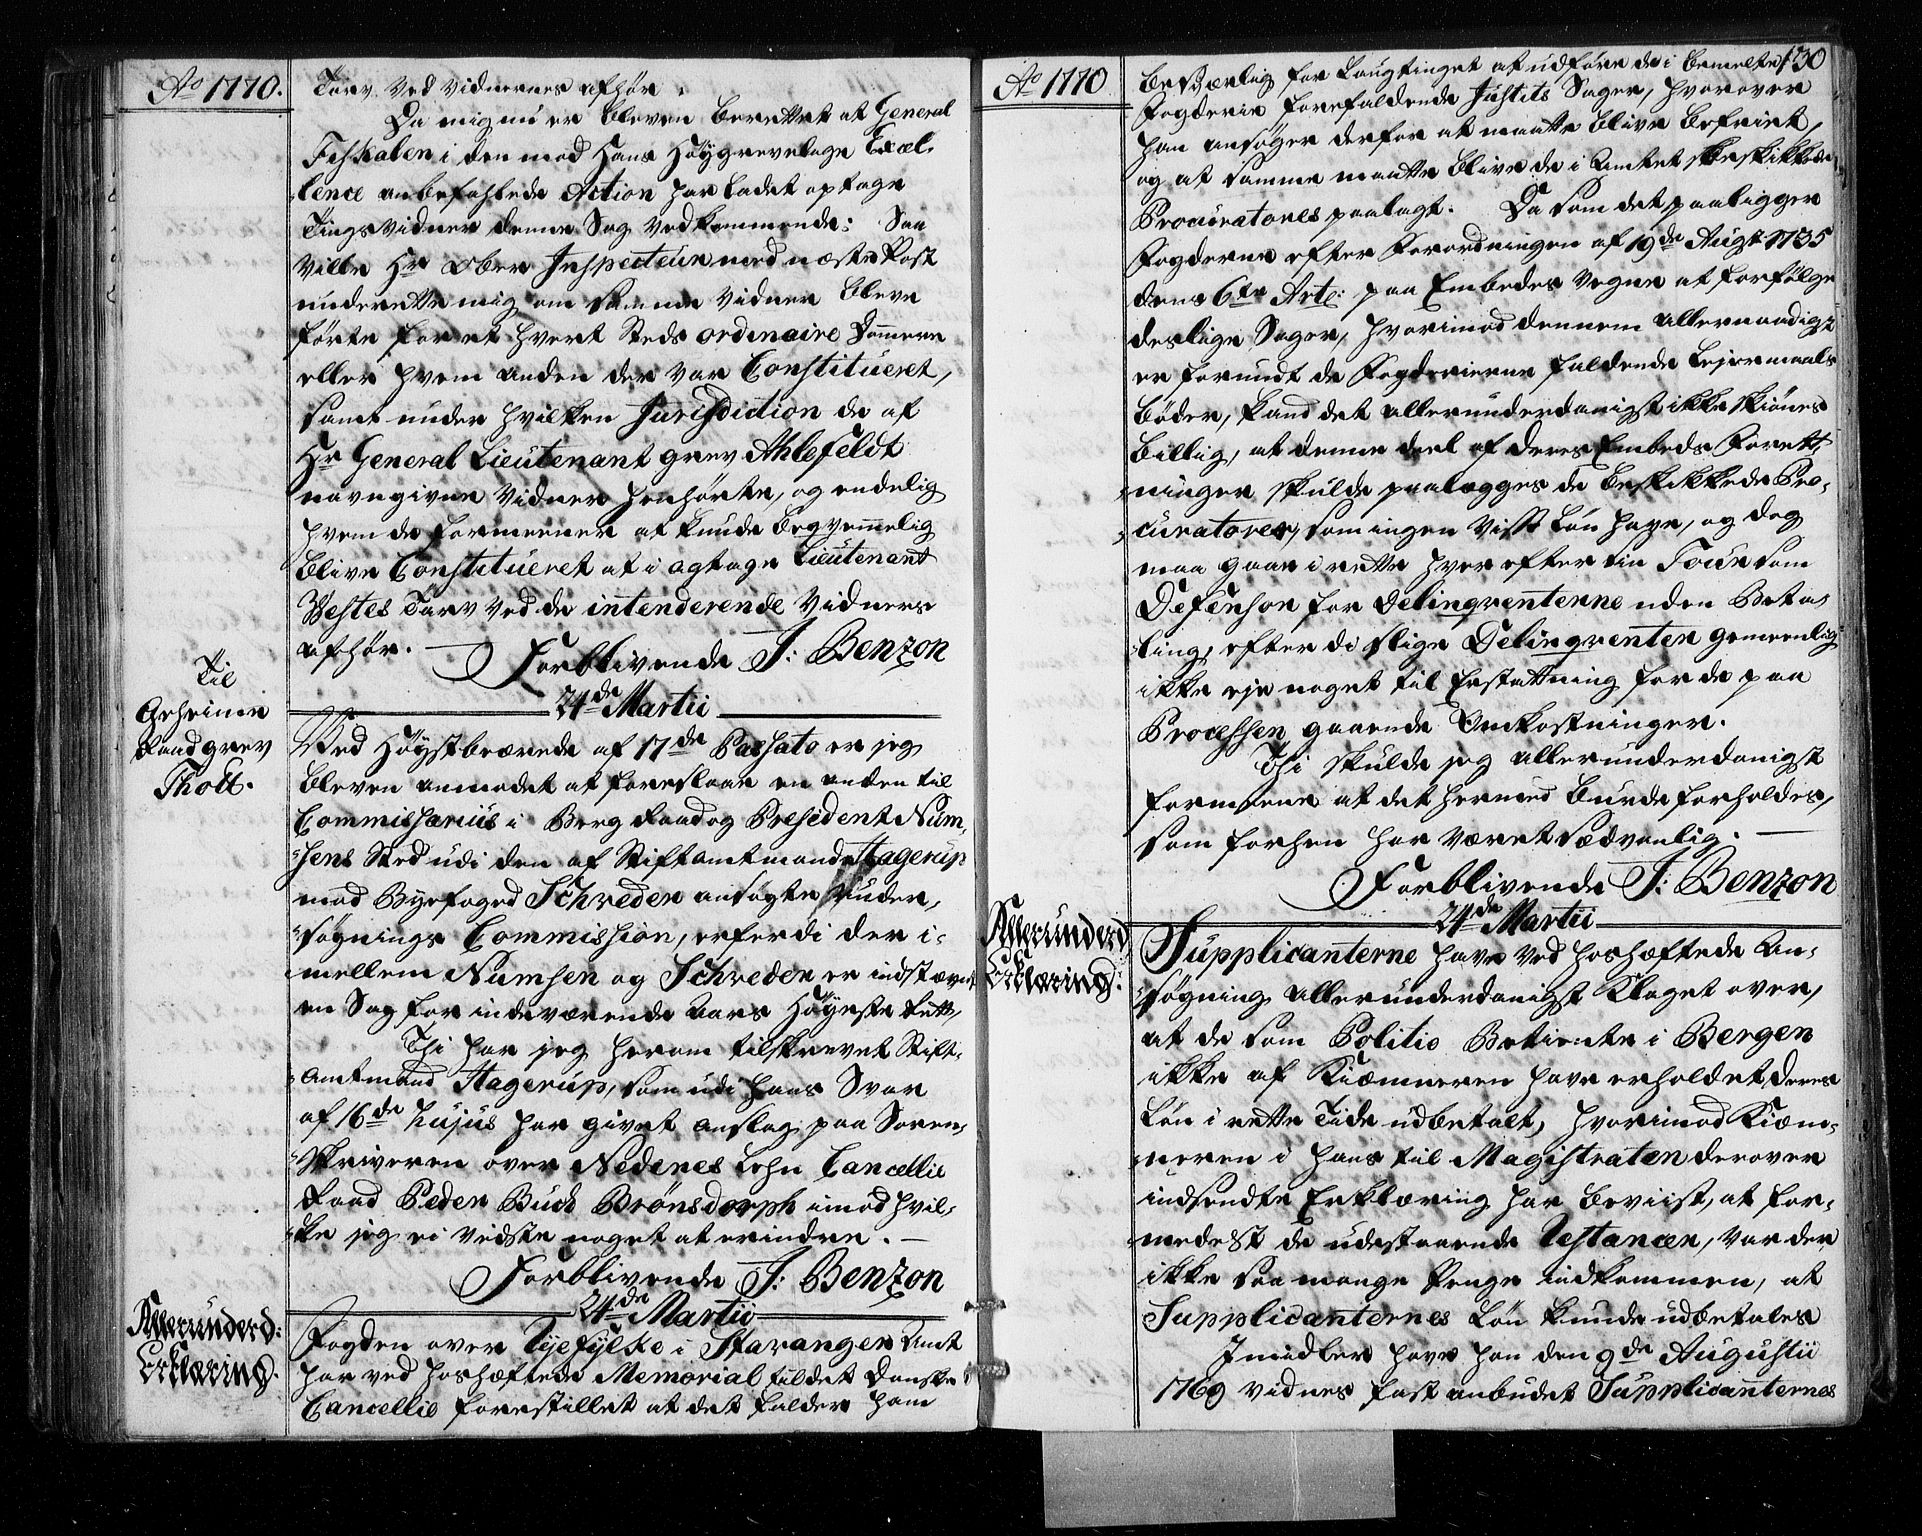 Ao 1770.
Tarv ved Vidnernes afhør.
Da mig nu er bleven berettet at General
Fiskalen i den mod Hans Høygrevelige Excel-
lence anbefahlede Action har ladet optage
Tingsvidner denne Sag vedkommende: Saa
ville Hr Ober Inspecteur med næste Post
underrette mig om samme Vidner bleve
førte for et hvert Steds ordinaire Dommere
eller hvem anden der var Constitueret,
samt under hvilken Jurisdiction de af
Hr General Lieutenant grev Ahlefeldt
navngivne Vidner henhørte, og endelig
hvem de formeener at kunde beqvemmelig
blive Constitueret at i agtage Lieutenant
Westes Tarv ved de intenderende Vidners
afhør. Forblivende J: Benzon
24de Martii
Til
Geheime
Raad grev
Thott.
Ved Høystbeærede af 17de Passato er jeg
bleven anmodet at foreslaae en anden til
Commissarius i Berg Raad og Præsident Num-
sens Sted udi den af Stiftamtmand Hagerup
mod Byefoged Schreder ansøgte Under-
søgnings Commission, efterdi der i-
mellem Numsen og Schreder er indstævnt
en Sag for indeværende Aars Høyeste Rett,
Thi har jeg herom tilskrevet Stift-
amtmand Hagerup, som udi hans Svar
af 16de hujus har givet Anslag paa Soren-
skriveren over Nedenes Lehn Cancellie
Raad Peder Buch Brønsdorph imod hvil-
ke jeg ei vedste noget at erindre.
Forblivende J: Benzon
24de Martii
Allerunderd:
Erklæring.
Fogden over Ryefylke i Stavanger Amt
har ved hoshæftede Memorial til det Danske
Cancellie forestillet at det falder ham
Ao 1770
130
besværlig for Laugtinget at udføre de i bemelte
Fogderie forefaldende Justits Sager, hvorover
han ansøger derfor at maatte blive befriet,
og at samme maatte blive de i Amtet beskikkede
Procuratores paalagt. Da som det paaligger
Fogderne efter Forordningen af 19de Augt 1735
dens 6te Artc: paa Embedes Vegne at forfølge
deslige Sager, hvorimod dennem allernaadigst
er forundt de Fogderierne faldende Lejermaals
bøder, kand det allerunderdanigst ikke skiønes
billig, at denne deel af deres Embeds Forrett-
ninger skulde paalegges de beskikkede Pro-
curatorer, som ingen vist Løn have, og dog
maa gaae i rette hver efter sin Tour som
Defensor for Delinqventerne uden Beta-
ling, efterdi slige Delinqventer gemeenlig
ikke eje noget til Erstattning for de paa
Processen gaaende Omkostninger.
Thi skulde jeg allerunderdanigst
formeene at det hermed burde forholdes,
som forhen har været sædvanlig.
Forblivende J: Benzon
24de Martii
Allerunderd
Erklæring:
Supplicanterne have ved hoshæftede An-
søgning allerunderdanigst klaget over,
at de som Politie Betiente i Bergen
ikke af Kiæmneren have erholdet deres
Løn i rette Tide udbetalt, hvorimod Kiæm-
neren i hans til Magistraten derover
indsendte Erklæring har beviist, at for-
medelst de udestaaende Restancer, var der
ikke saa mange Penge indkommen, at
Supplicanternes Løn kunde udbetales
Imidler have han den 9de Augustii
1769 Vidnes fast anbudet Supplicanternes